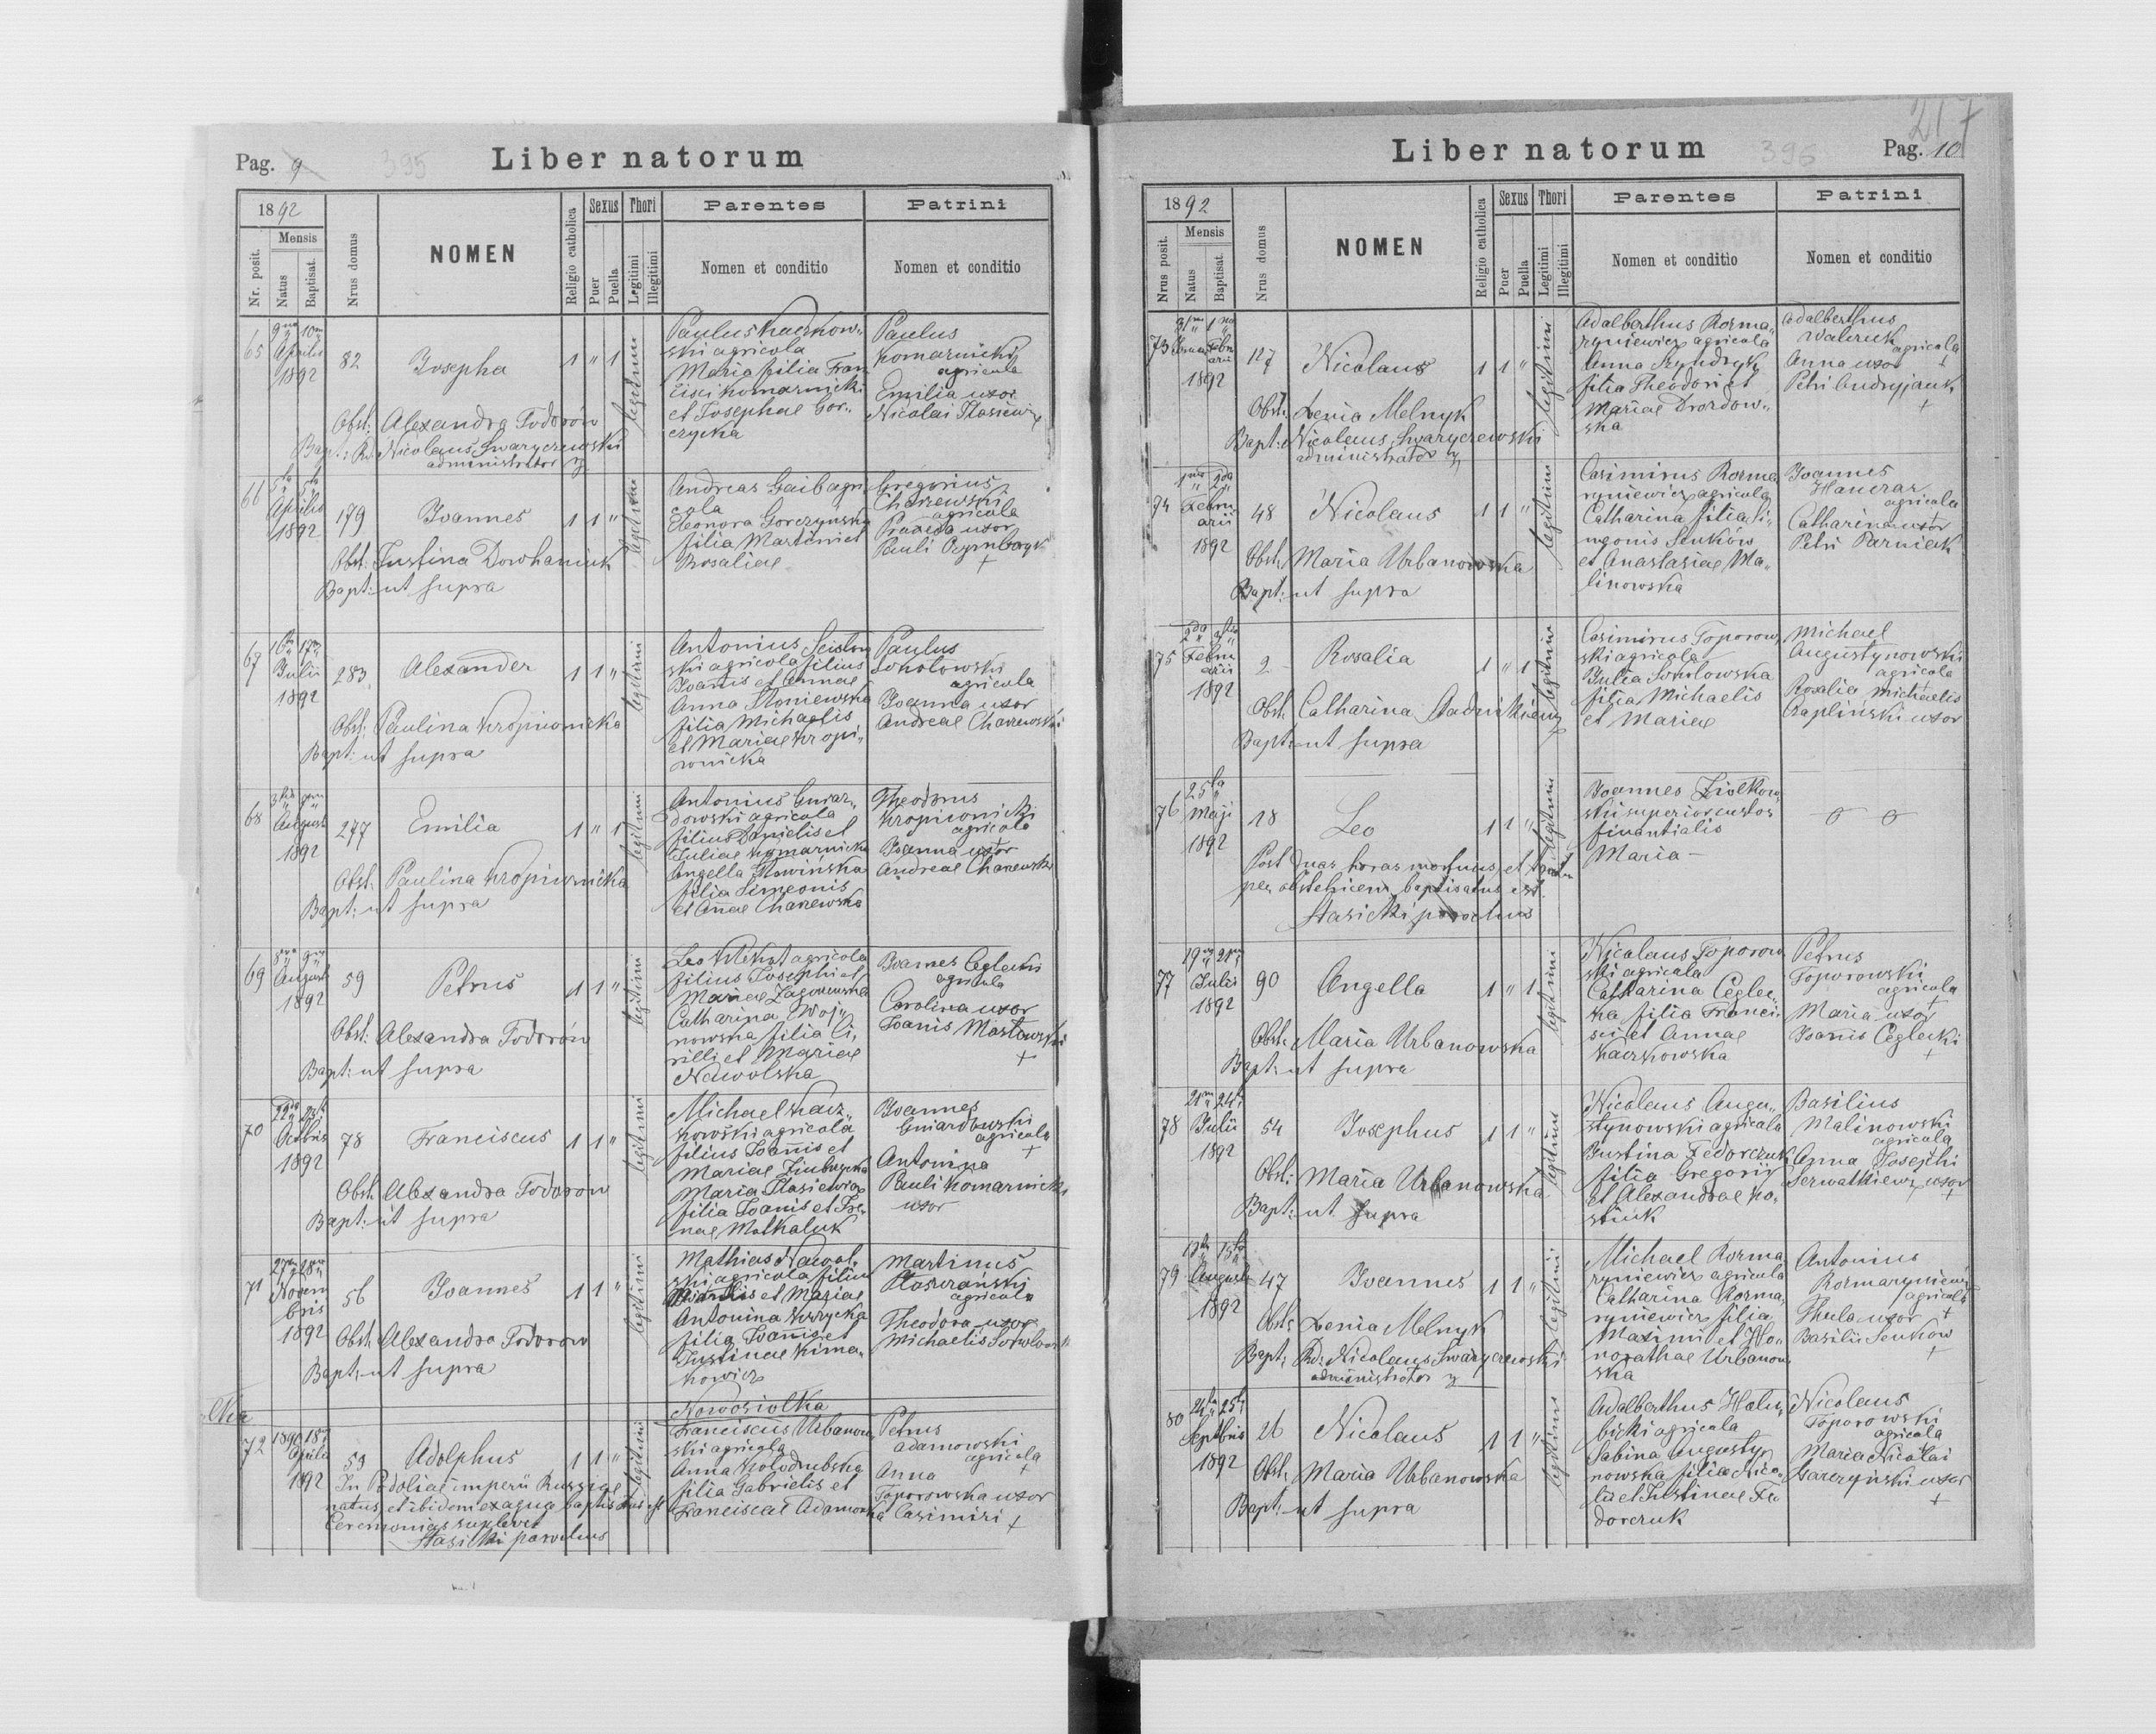 Pag. 9
395
Liber natorum
1892
Mensis
Nr. posit.
Natus
Baptisat.
Nrus domus
NOMEN
Religio catholica
Sexus
Puer
Puella
Thori
Legitimi
Illegitimi
Parentes
Nomen et conditio
Patrini
Nomen et conditio
65
Aprilis
1892
82
Josepha
1 " 1
legitimi
Obst: Alexandra Todorów
Bapt: Rd. Nicolaus Swaryczewski
administrator
Paulus Kaczkow-
ski agricola
Maria filia Fran
cisci Komarnicki
et Josephae Gor-
czycka
Paulus
Komarnicki
agricola
Emilia uxor
Nicolai Stasiewicz
66
Aprilis
1892
179
Joannes
1 1 "
legitimi
Obst: Justina Dowhaniuk
Bapt: ut supra
Andreas Gaib agri
cola
Eleonora Gorczynska
filia Martini et
Rosaliae
Gregorius
Charzewski
agricola
Praxeda uxor
Pauli
67
Julii
1892
283
Alexander
1 1 "
legitimi
Obst: Paulina Kropiwnicka
Bapt: ut supra
Antonius
ski agricola filius
Joannis et Annae
Anna Stoniewska
filia Michaelis
et Mariae Kropi-
wnicka
Paulus
Sokolowski
agricola
Joanna uxor
Andreae Charzewski
68
Augusti
1892
277
Emilia
1 " 1
legitimi
Obst: Paulina Kropiwnicka
Bapt: ut supra
Antonius Gniaz-
dowski agricola
filius Danielis et
Juliae Komarnicka
Angella Slowińska
filia Simeonis
et Annae Charzewska
Theodorus
Kropiwnicki
agricola
Joanna uxor
Andreae Charzewski
69
Augusti
1892
59
Petrus
1 1 "
legitimi
Obst: Alexandra Todorów
Bapt: ut supra
Leo agricola
filius Josephi et
Mariae Zagorzewska
Catharina Woj-
nowska filia Ci-
rilli et Mariae
Nawolska
Joannes Ceglecki
agricola
Carolina uxor
Joanis Mostowski
+
70
Octobris
1892
78
Franciscus
1 1 "
legitimi
Obst: Alexandra Todorow
Bapt: ut supra
Michael Kacz-
kowski agricola
filius Joannis et
Mariae
Maria Stasiewicz
filia Joanis et Ire-
nae Mathaluk
Joannes
Gniazdowski
agricola
+
Antonina
Pauli Komarnicki
uxor
71
Novem
bris
1892
56
Joannes
1 1 "
legitimi
Obst: Alexandra Todorow
Bapt: ut supra
Mathias Nawol-
ski agricola filius
Joannis et Mariae
Antonina
filia Joannis et
Justinae Klima-
kowicz
Martinus
agricola
Theodora uxor
Michaelis
Nowosiolka
72
Aprilis
1892
59
Adolphus
1 1 "
legitimi
In Podolia imperii Russiae
natus, et ibidem ex aqua baptisatus est
Ceremonias suplevit
Stasicki parochus
Franciscus Urbanow-
ski agricola
Anna Kolodrubska
filia Gabrielis et
Franciscae Adamowska
Petrus
Adamowski
agricola
+
Anna
Toporowska uxor
Casimiri +
217
Liber natorum
396
Pag. 10
1892
Mensis
Nrus posit.
Natus
Baptisat.
Nrus domus
NOMEN
Religio catholica
Sexus
Puer
Puella
Thori
Legitimi
Illegitimi
Parentes
Nomen et conditio
Patrini
Nomen et conditio
73
1892
127
Nicolaus
1 1 "
legitimi
Obst: Xenia Melnyk
Bapt: Nicolaus Swaryczewski
administrator
Adalberthus Rozma-
ryniewicz agricola
Anna Szyndryk
filia Theodori et
Mariae Drozdow-
ska
Adalberthus
agricola
+
Anna uxor
Petri Andryjauk
+
74
Febru
arii
1892
48
Nicolaus
1 1 "
legitimi
Obst: Maria Urbanowska
Bapt: ut supra
Casimirus Rozma
ryniewicz agricola
Catharina filia Si-
meonis Senków
et Anastasiae Ma-
linowska
Joannes
Hanczar
agricola
+
Catharina uxor
Petri Parniak
75
Febru
arii
1892
2
Rosalia
1 " 1
legitimi
Obst: Catharina
Bapt: ut supra
Casimirus Toporow-
ski agricola
Julia Sokolowska
filia Michaelis
et Mariae
Michael
Augustynowski
agricola
+
Rosalia Michaelis
Czapliński uxor
76
25ta
Maji
1892
18
Leo
1 1 "
legitimi
Post duas horas mortuus et
per obstetricem baptisatus est.
Stasicki parochus
Joannes Ziolkow-
ski superior custos
finantialis
Maria –
77
Julii
1892
90
Angella
1 " 1
legitimi
Obst: Maria Urbanowska
Bapt: ut supra
Nicolaus Toporow
ski agricola
Catharina Ceglec-
ka filia Franci-
sci et Annae
Kaczkowska
Petrus
Toporowski
agricola
+
Maria uxor
Joannis Ceglecki
+
78
Julii
1892
54
Josephus
1 1 "
legitimi
Obst: Maria Urbanowska
Bapt: ut supra
Nicolaus Augu-
stynowski agricola
Justina Fedorczuk
filia Gregorii
et Alexandrae Ko-
stiuk
Basilius
Malinowski
agricola
Anna Josephi
Serwatkiewicz uxor
+
79
Augusti
1892
47
Joannes
1 1 "
legitimi
Obst: Xenia Melnyk
Bapt: Rd: Nicolaus Swaryczewski
administrator
Michael Rozma
ryniewicz agricola
Catharina Rozma-
ryniewicz filia
Maximi et Ho-
norathae Urbanow-
ska
Antonius
Rozmaryniewicz
agricola
+
Thecla uxor
Basilii Senkow
+
80
Septbris
1892
26
Nicolaus
1 1 "
legitimi
Obst: Maria Urbanowska
Bapt: ut supra
Adalberthus Holu-
bicki agricola
Sabina Augusty-
nowska filia Nico-
lai et Justinae Fe
dorczuk
Nicolaus
Toporowski
agricola
Maria Nicolai
uxor
+